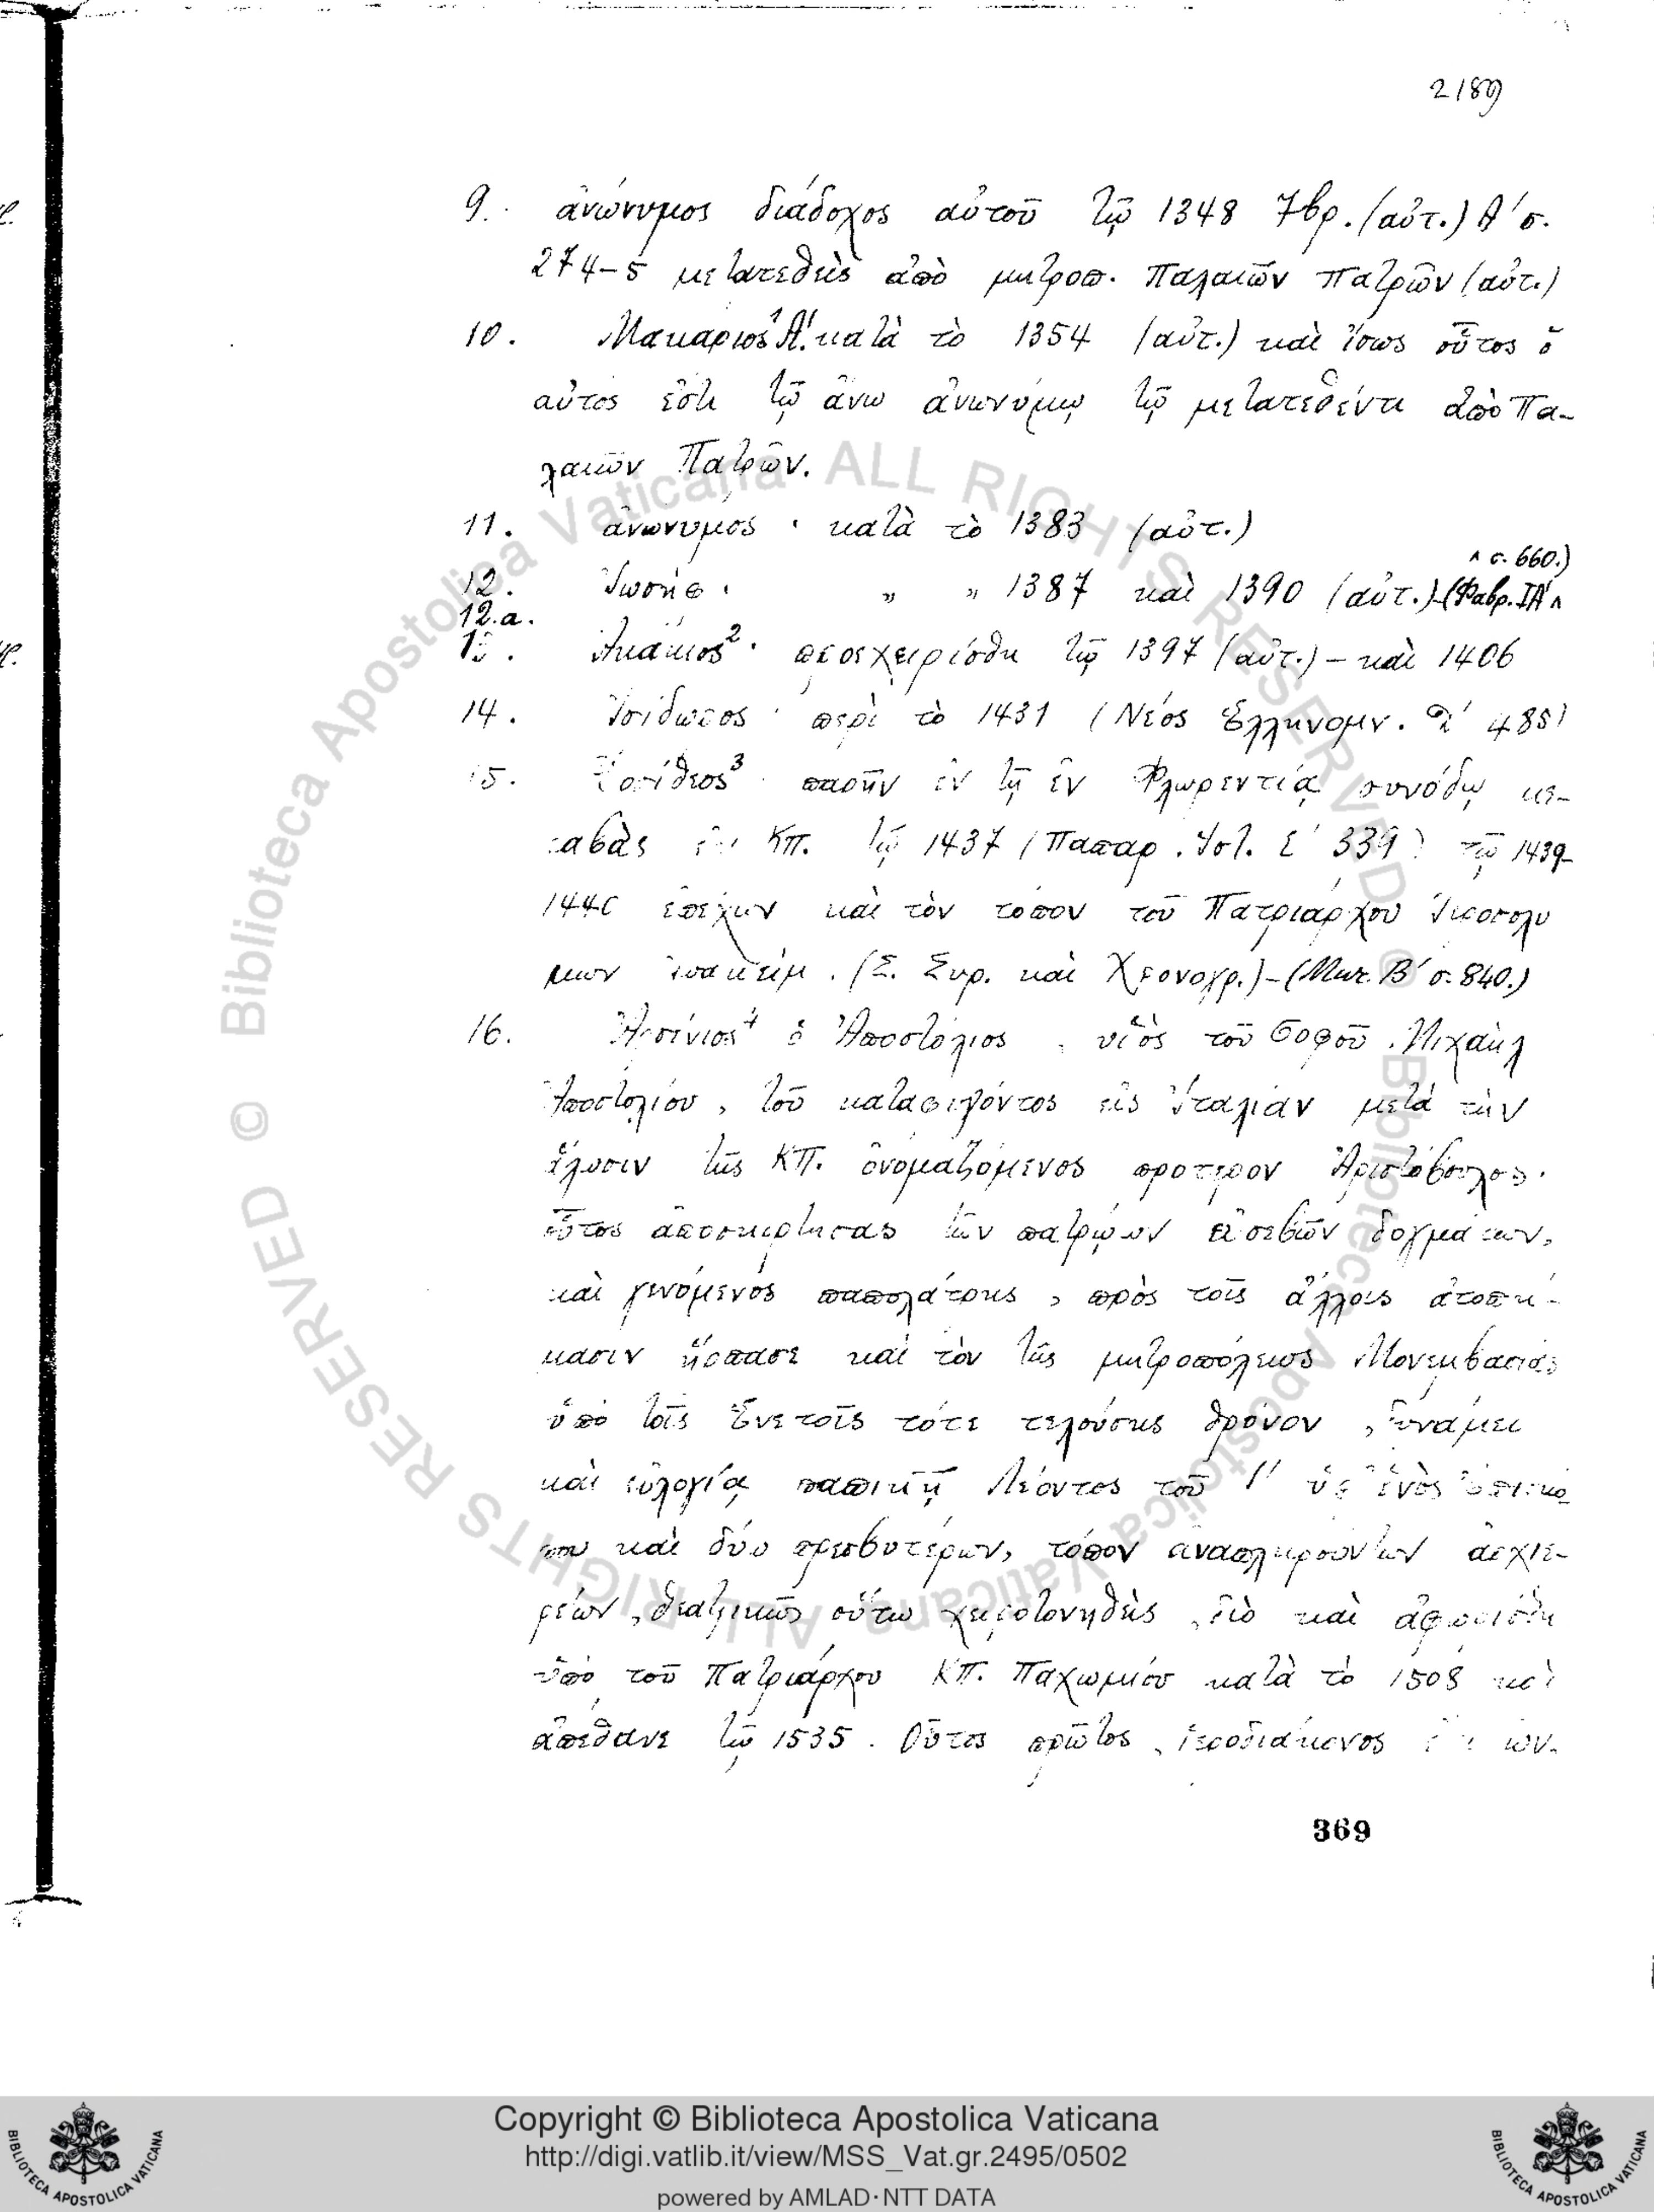 2189
9. ἀνώνυμος διάδοχος αὐτοῦ τῷ 1348 7βρ. (αὐτ.) Α΄ σ.
274–5 μετατεθεὶς ἀπὸ μητροπ. Παλαιῶν Πατρῶν (αὐτ.)
10. Μακάριος¹ Α΄. κατὰ τὸ 1354 (αὐτ.) καὶ ἴσως οὗτος ὁ
αὐτὸς ἐστι τῷ ἄνω ἀνωνύμῳ τῷ μετατεθέντι ἀπὸ Πα-
λαιῶν Πατρῶν.
11. ἀνώνυμος · κατὰ τὸ 1383 (αὐτ.)
^ σ. 660.)
12. Ἰωσήφ · „ „ 1387 καὶ 1390 (αὐτ.)-(Φαβρ. ΙΑ΄ ^
12.a.
13. Ἀκάκιος² · προεχειρίσθη τῷ 1397 (αὐτ.) – καὶ 1406
14. Ἰσίδωρος · περὶ τὸ 1431 (Νέος Ἑλληνομν. 485)
15. Δοσίθεος³ · παρῆν ἐν τῇ ἐν Φλωρεντίᾳ συνόδῳ με-
ταβὰς ἐκ Κπ. τῷ 1437 (Παπαρ. Ἱστ. Ε΄ 339) τῷ 1439-
1440 ἐπέχων καὶ τὸν τόπον τοῦ Πατριάρχου Ἱεροσολύ
μων Ἰωακείμ. (Σ. Συρ. καὶ Χρονογρ.)-(Μαν. Β΄ σ. 840.)
16. Ἀρσένιος⁴ ὁ Ἀποστόλιος, υἱὸς τοῦ σοφοῦ Μιχαὴλ
Ἀποστολίου, τοῦ καταφυγόντος εἰς Ἰταλίαν μετὰ τὴν
ἅλωσιν τῆς ΚΠ. ὀνομαζόμενος πρότερον Ἀριστόβουλος·
οὗτος ἀποσκιρτήσας τῶν πατρῴων εὐσεβῶν δογμάτων,
καὶ γενόμενος παπολάτρης, πρὸς τοῖς ἄλλοις ἀτοπή-
μασιν ἥρπασε καὶ τὸν τῆς μητροπόλεως Μονεμβασίας
ὑπὸ τοῖς Ἐνετοῖς τότε τελούσης θρόνον, δυνάμει
καὶ εὐλογίᾳ παπικῇ Λέοντος τοῦ Ι΄ ὑφ' ἑνὸς ἐπισκό
που καὶ δύο πρεσβυτέρων, τόπον ἀναπληρούντων ἀρχιε-
ρέων, θεατρικῶς οὕτω χειροτονηθεὶς, διὸ καὶ ἀφωρίσθη
ὑπὸ τοῦ Πατριάρχου ΚΠ. Παχωμίου κατὰ τὸ 1508 καὶ
ἀπέθανε τῷ 1535. Οὗτος πρῶτος, ἱεροδιάκονος ὢν
369
Copyright © Biblioteca Apostolica Vaticana
http://digi.vatlib.it/view/MSS_Vat.gr.2495/0502
powered by AMLAD·NTT DATA
BIBLIOTECA APOSTOLICA VATICANA
BIBLIOTECA APOSTOLICA VATICANA
© Biblioteca Apostolica Vaticana ALL RIGHTS RESERVED
© Biblioteca Apostolica Vaticana ALL RIGHTS RESERVED